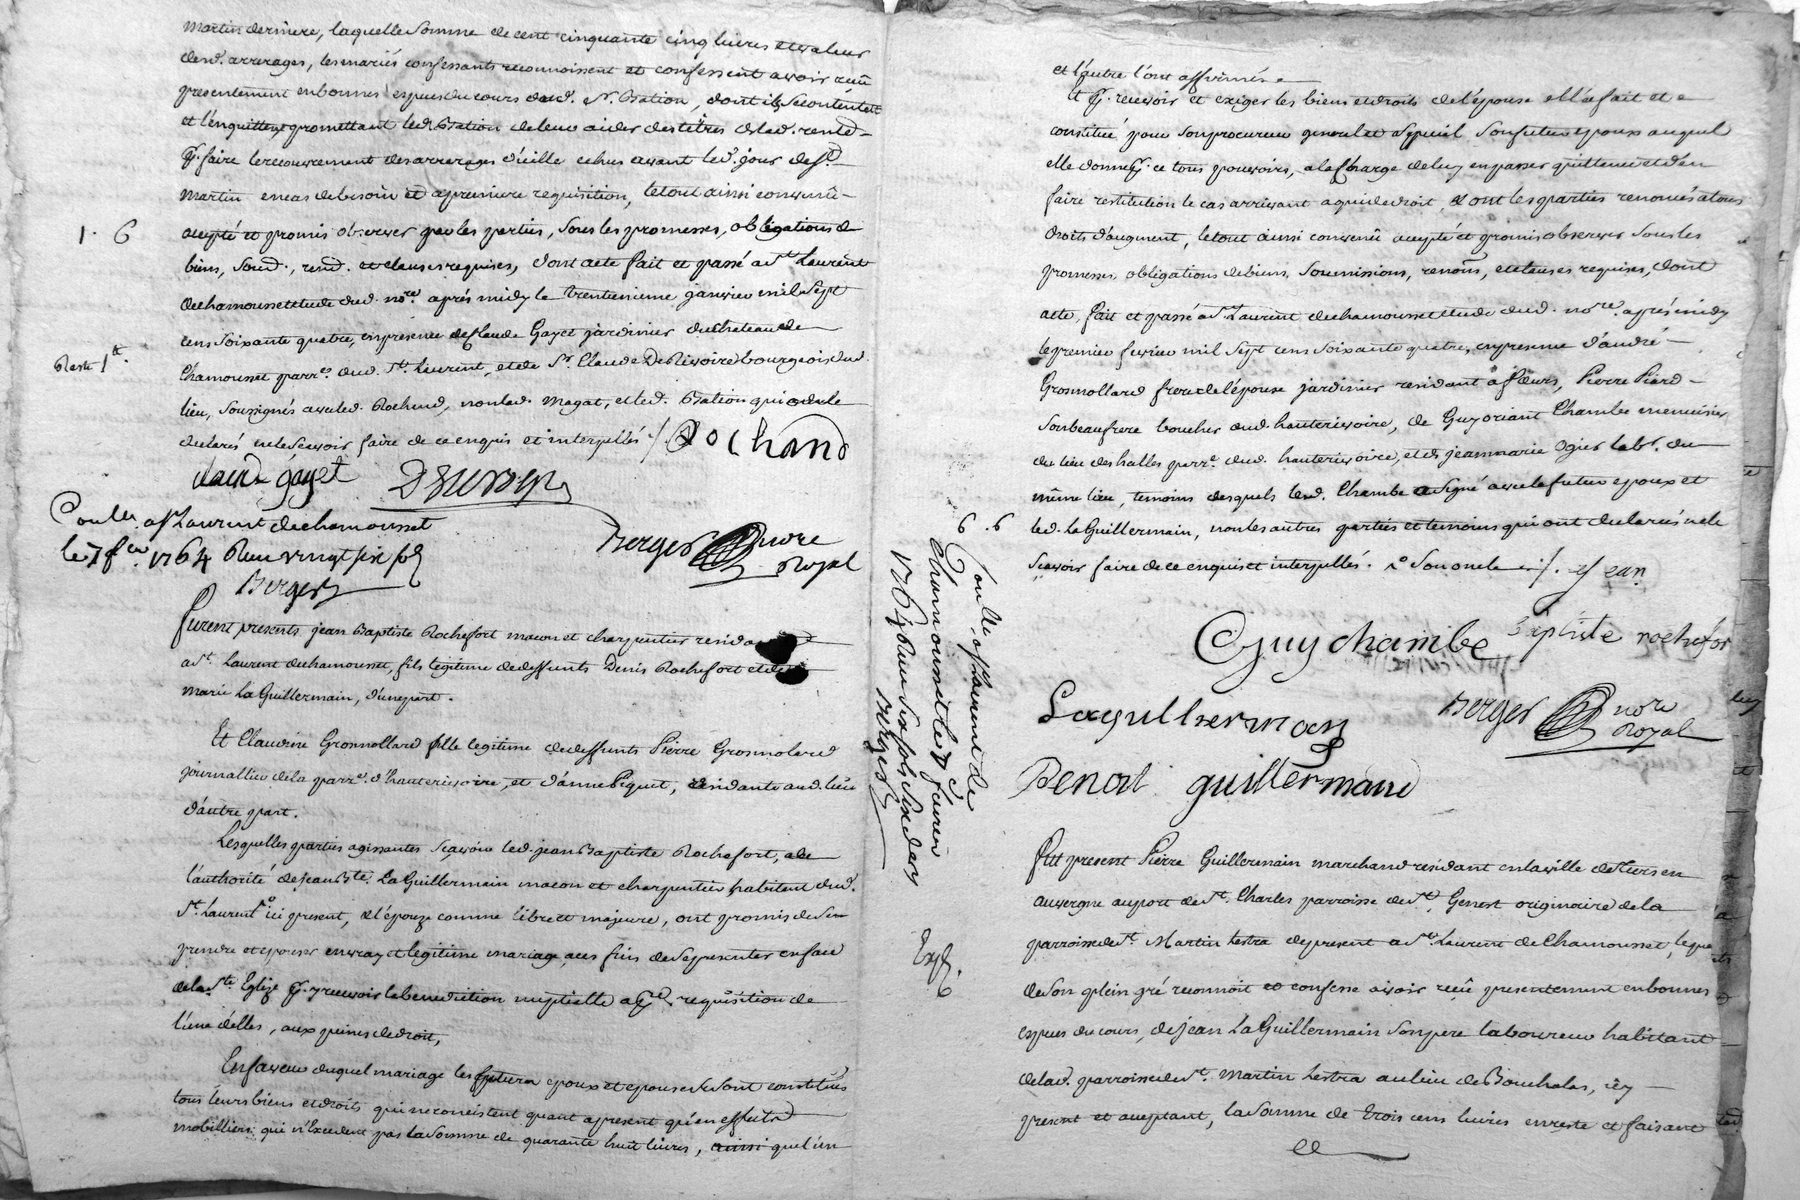 Martin derniere, laquelle somme de cent cinquante cinq livres et valeur
desd. arrerages, les mariés confessants reconnoissent et confessent avoir reçû
presentement en bonnes especes du cours dud. Sr. Bation, dont ils se contentent
et l'en quittent promettant led. Bation de leur aider des titres de lad. rente
pr. faire le recouvrement des arrerages d'icelle echus avant led. jour de St.
Martin en cas de besoin et a premiere requisition, le tout ainsi convenû
1 . 6
accepté et promis observer par les parties, sous les promesses, obligations de
biens, soud., rend. et clauses requises, dont acte fait et passé a St. Laurent
dechamousset etude dud. nore. aprés midy le trentieme janvier mil sept
cens soixante quatre, en presence de Claude Gayet jardinier du chateau de
Reste 1tt.
Chamousset parre. dud. St. Laurent, et de Sr. Claude De Rivoire bourgeois dud.
lieu, soussignés avec led. Rochand, non lad. Magat, et led. Bation qui ont de
declarés ne le scavoir faire de ce enquis et interpellés ./. Rochand
claude gayet
Conllé. a St Laurent dechamousset
le 7 fer. 1764 Reçu vingt six sols
Berger
Berger nore Royal
Furent presents jean Baptiste Rochefort macon et charpentier residant
a St. Laurent dechamousset, fils legitime de deffunts Denis Rochefort et de
marie La Guillermain, d'une part.
Et Claudine Grosnollard fille legitime de deffunts Pierre Grosnolard
journallier de la parre. d'hauterivoire, et d'anne Piquet, residante aud. lieu
d'autre part.
Lesquelles parties agissantes scavoir led. jean Baptiste Rochefort, de
l'authorité de jean Bte. La Guillermain macon et charpentier habitant dud.
St. Laurent ici present, et l'épouze comme libre et majeure, ont promis de se
prendre et epouser en vray et legitime mariage, a ces fins de se presenter en face
de la Ste. Eglize pr. y recevoir la benediction nuptialle a la pre. requisition de
l'une d'elles, aux peines de droit,
En faveur duquel mariage les futurs epoux et epouse se sont constitués
tous leurs biens et droits qui ne consistent quant a present qu'en effets
mobilliers qui n'Excedent pas la somme de quarante huit livres, ainsi que l'un
et l'autre l'ont affirmés.
Et pr. recevoir et exiger les biens et droits de l'épouse elle a fait et
constitué pour son procureur general et special son futur epoux auquel
elle donne pr. ce tous pouvoirs, a la charge de luy en passer quittance et d'en
faire restitution le cas arrivant a qui de droit, et ont les parties renoncés a tous
droits d'augment, le tout ainsi convenû accepté et promis observer sous les
promesses, obligations de biens, soumissions, renons, et clauses requises, dont
acte, fait et passé a St. Laurent dechamousset etude dud. nore. aprés midy
le premier fevrier mil sept cens soixante quatre, en presence d'andré
Grosnollard frere de l'épouse jardinier residant a fleurs, Pierre Piard
son beaufrere boucher dud. hauterivoire, de Guy oriant Chambe menuisier
du lieu des halles parre. dud. hauterivoire, et de jean marie Ogier labr. du
même lieu, temoins desquels led. Chambe a signé avec le futur epoux et
6 . 6
led. La Guillermain, non les autres parties et temoins qui ont declarés ne le
scavoir faire de ce enquis et interpellés. ° son oncle ./. jean
Baptiste rochefor
Guy chambe
Laguillermain
Berger nore Royal
Benoit guillermain
Conllé. a St Laurent de
Chamousset le 7 fevrier
1764 Reçu six sols six den
Berger
Fut present Pierre Guillermain marchand residant en la ville de Tiers en
auvergne au port de St. Charles parroisse de St. Genest originaire de la
Exp.
parroisse de St. Martin Lestra de present a St. Laurent de Chamousset, lequel
6
de son plein gré reconnoit et confesse avoir reçû presentement en bonnes
especes du cours, de jean La Guillermain son pere laboureur habitant
de lad. parroisse de St. Martin Lestra au lieu de Bouchalas, icy
present et acceptant, la somme de trois cens livres en reste et faisant